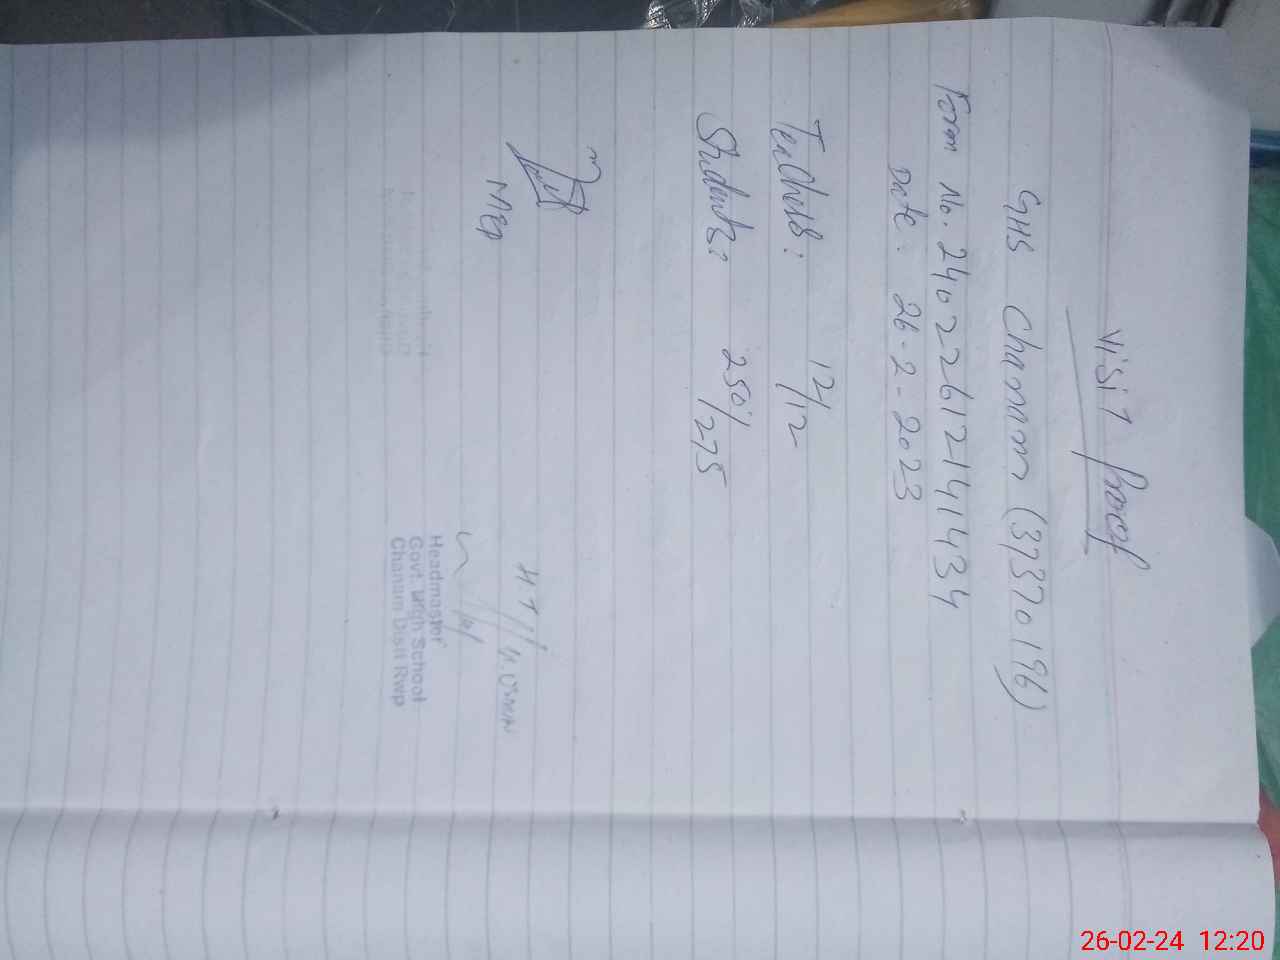 Visit Proof
GHS Chanam (37370196)
Form No. 240226121414134
Date: 26-2-2023
Teachers: 12/12
Students: 250/275
MEA
HT
Headmaster
Govt. High School
Chanam Distt Rwp
26-02-24 12:20